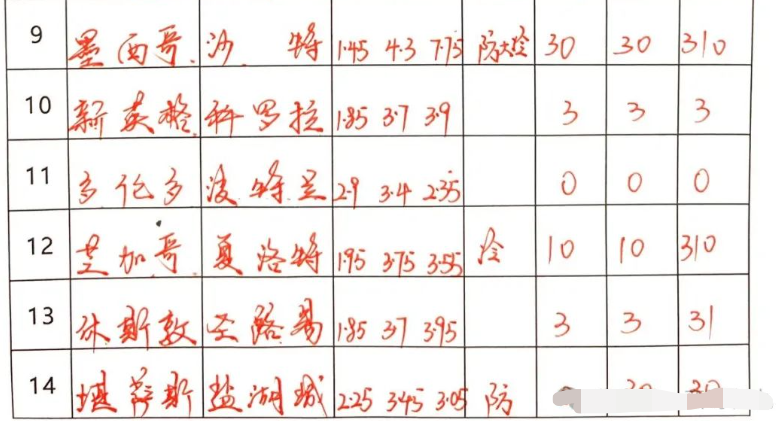 9 墨西哥 沙 特 1.45 4.3 7.75 防大冷 30 30 310
10 新英格 科罗拉 1.85 3.7 3.9 3 3 3
11 多伦多 波特兰 2.9 3.4 2.35 0 0 0
12 芝加哥 夏洛特 1.95 3.75 3.55 冷 10 10 310
13 休斯敦 圣路易 1.85 3.7 3.95 3 3 31
14 堪萨斯 盐湖城 2.25 3.45 3.05 防 30 30